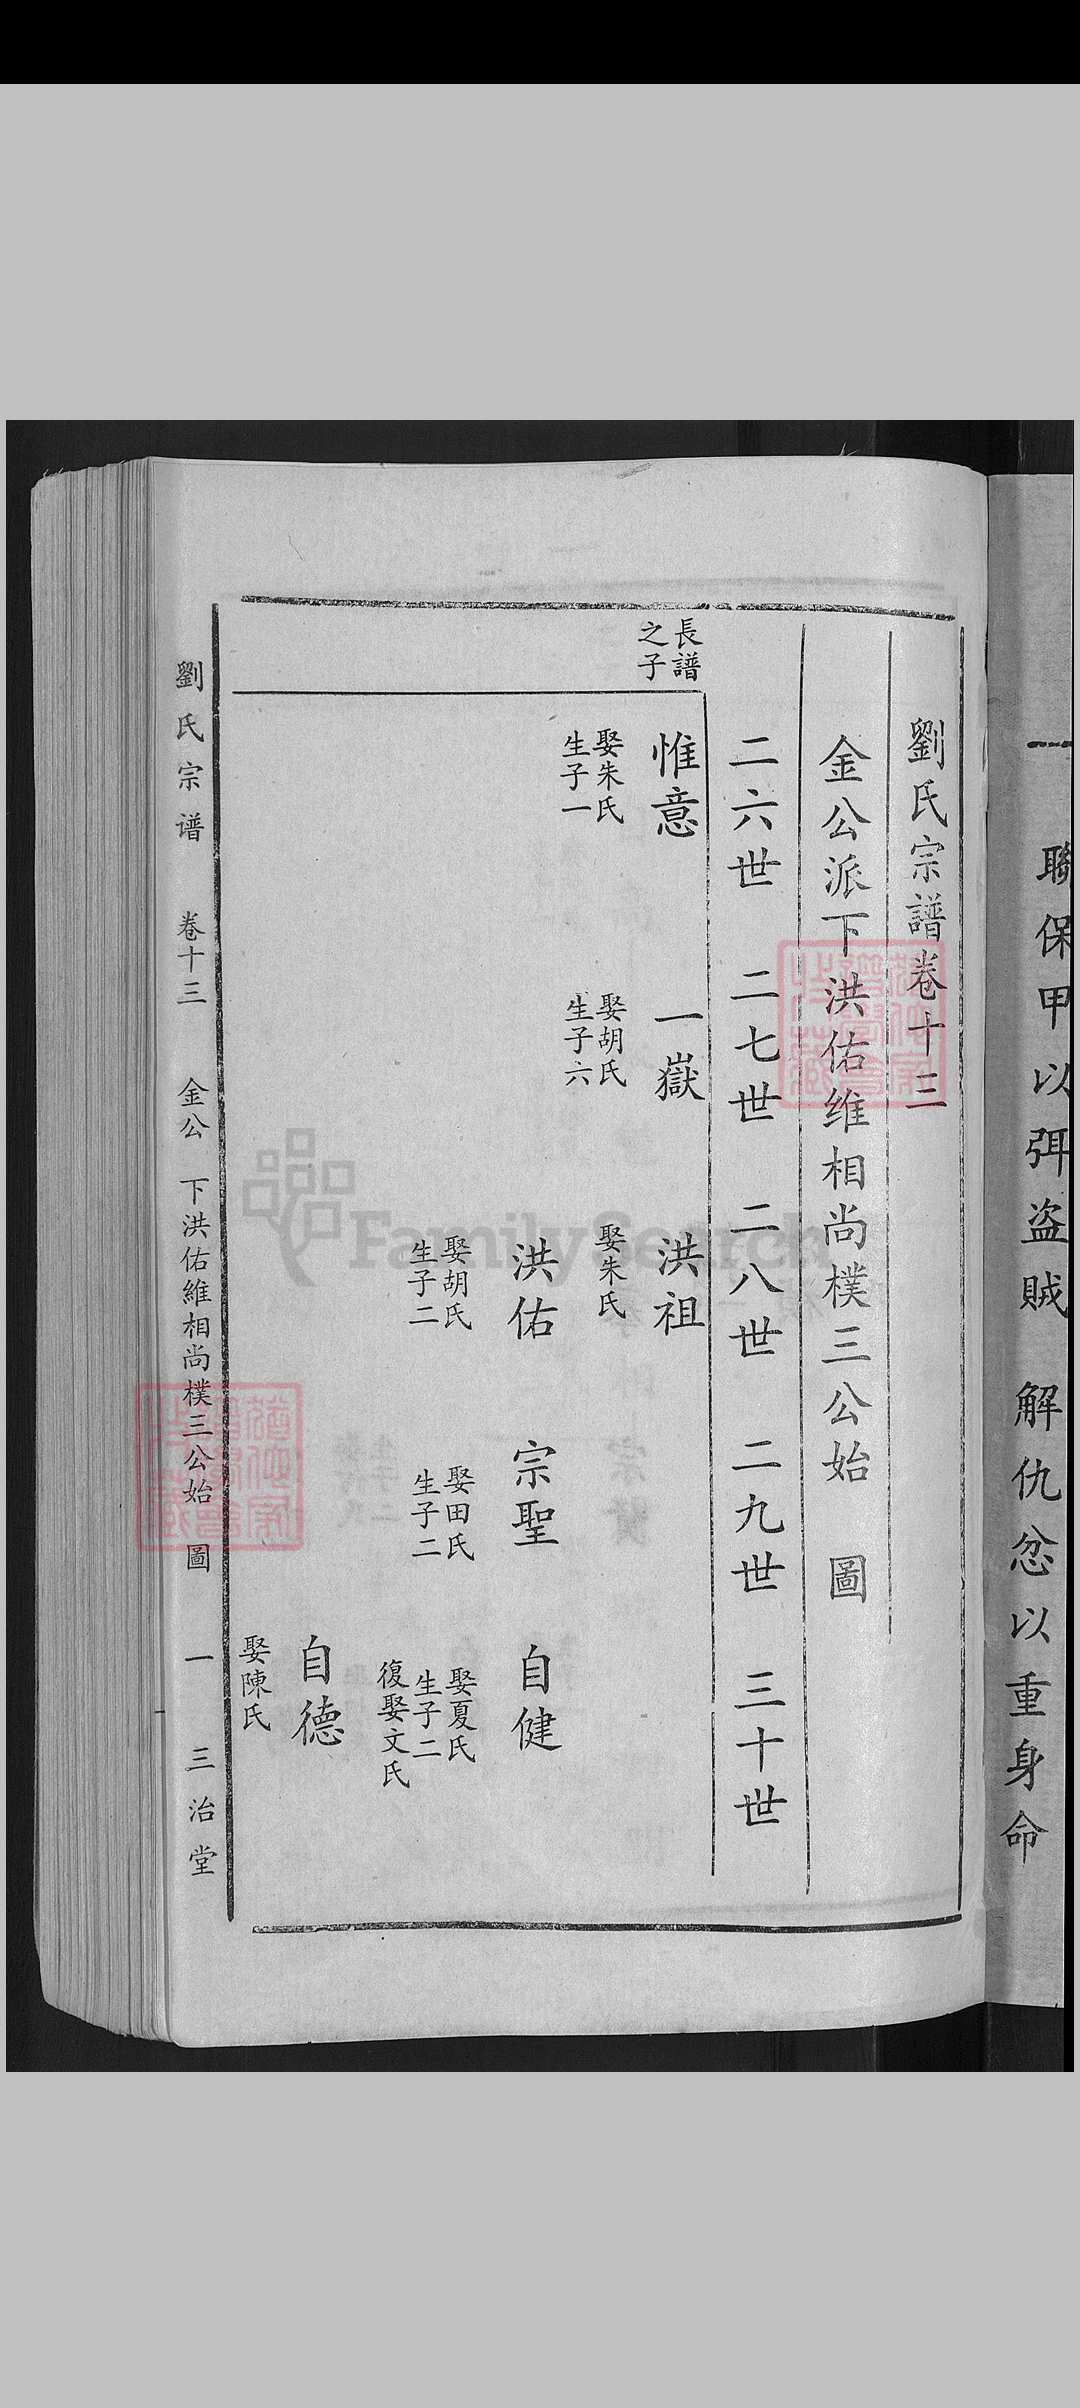 聯保甲以弭盜賊
解仇忿以重身命
劉氏宗譜卷十三
金公派下洪佑维相尚樸三公始 圖
二六世 二七世 二八世 二九世 三十世
長譜
之子
惟意
娶朱氏
生子一
一嶽
娶胡氏
生子六
洪祖
娶朱氏
洪佑
娶胡氏
生子二
宗聖
娶田氏
生子二
自健
娶夏氏
生子二
復娶文氏
自德
娶陳氏
劉氏宗谱 卷十三 金公 下洪佑維相尚樸三公始 圖 一 三治堂
FamilySearch